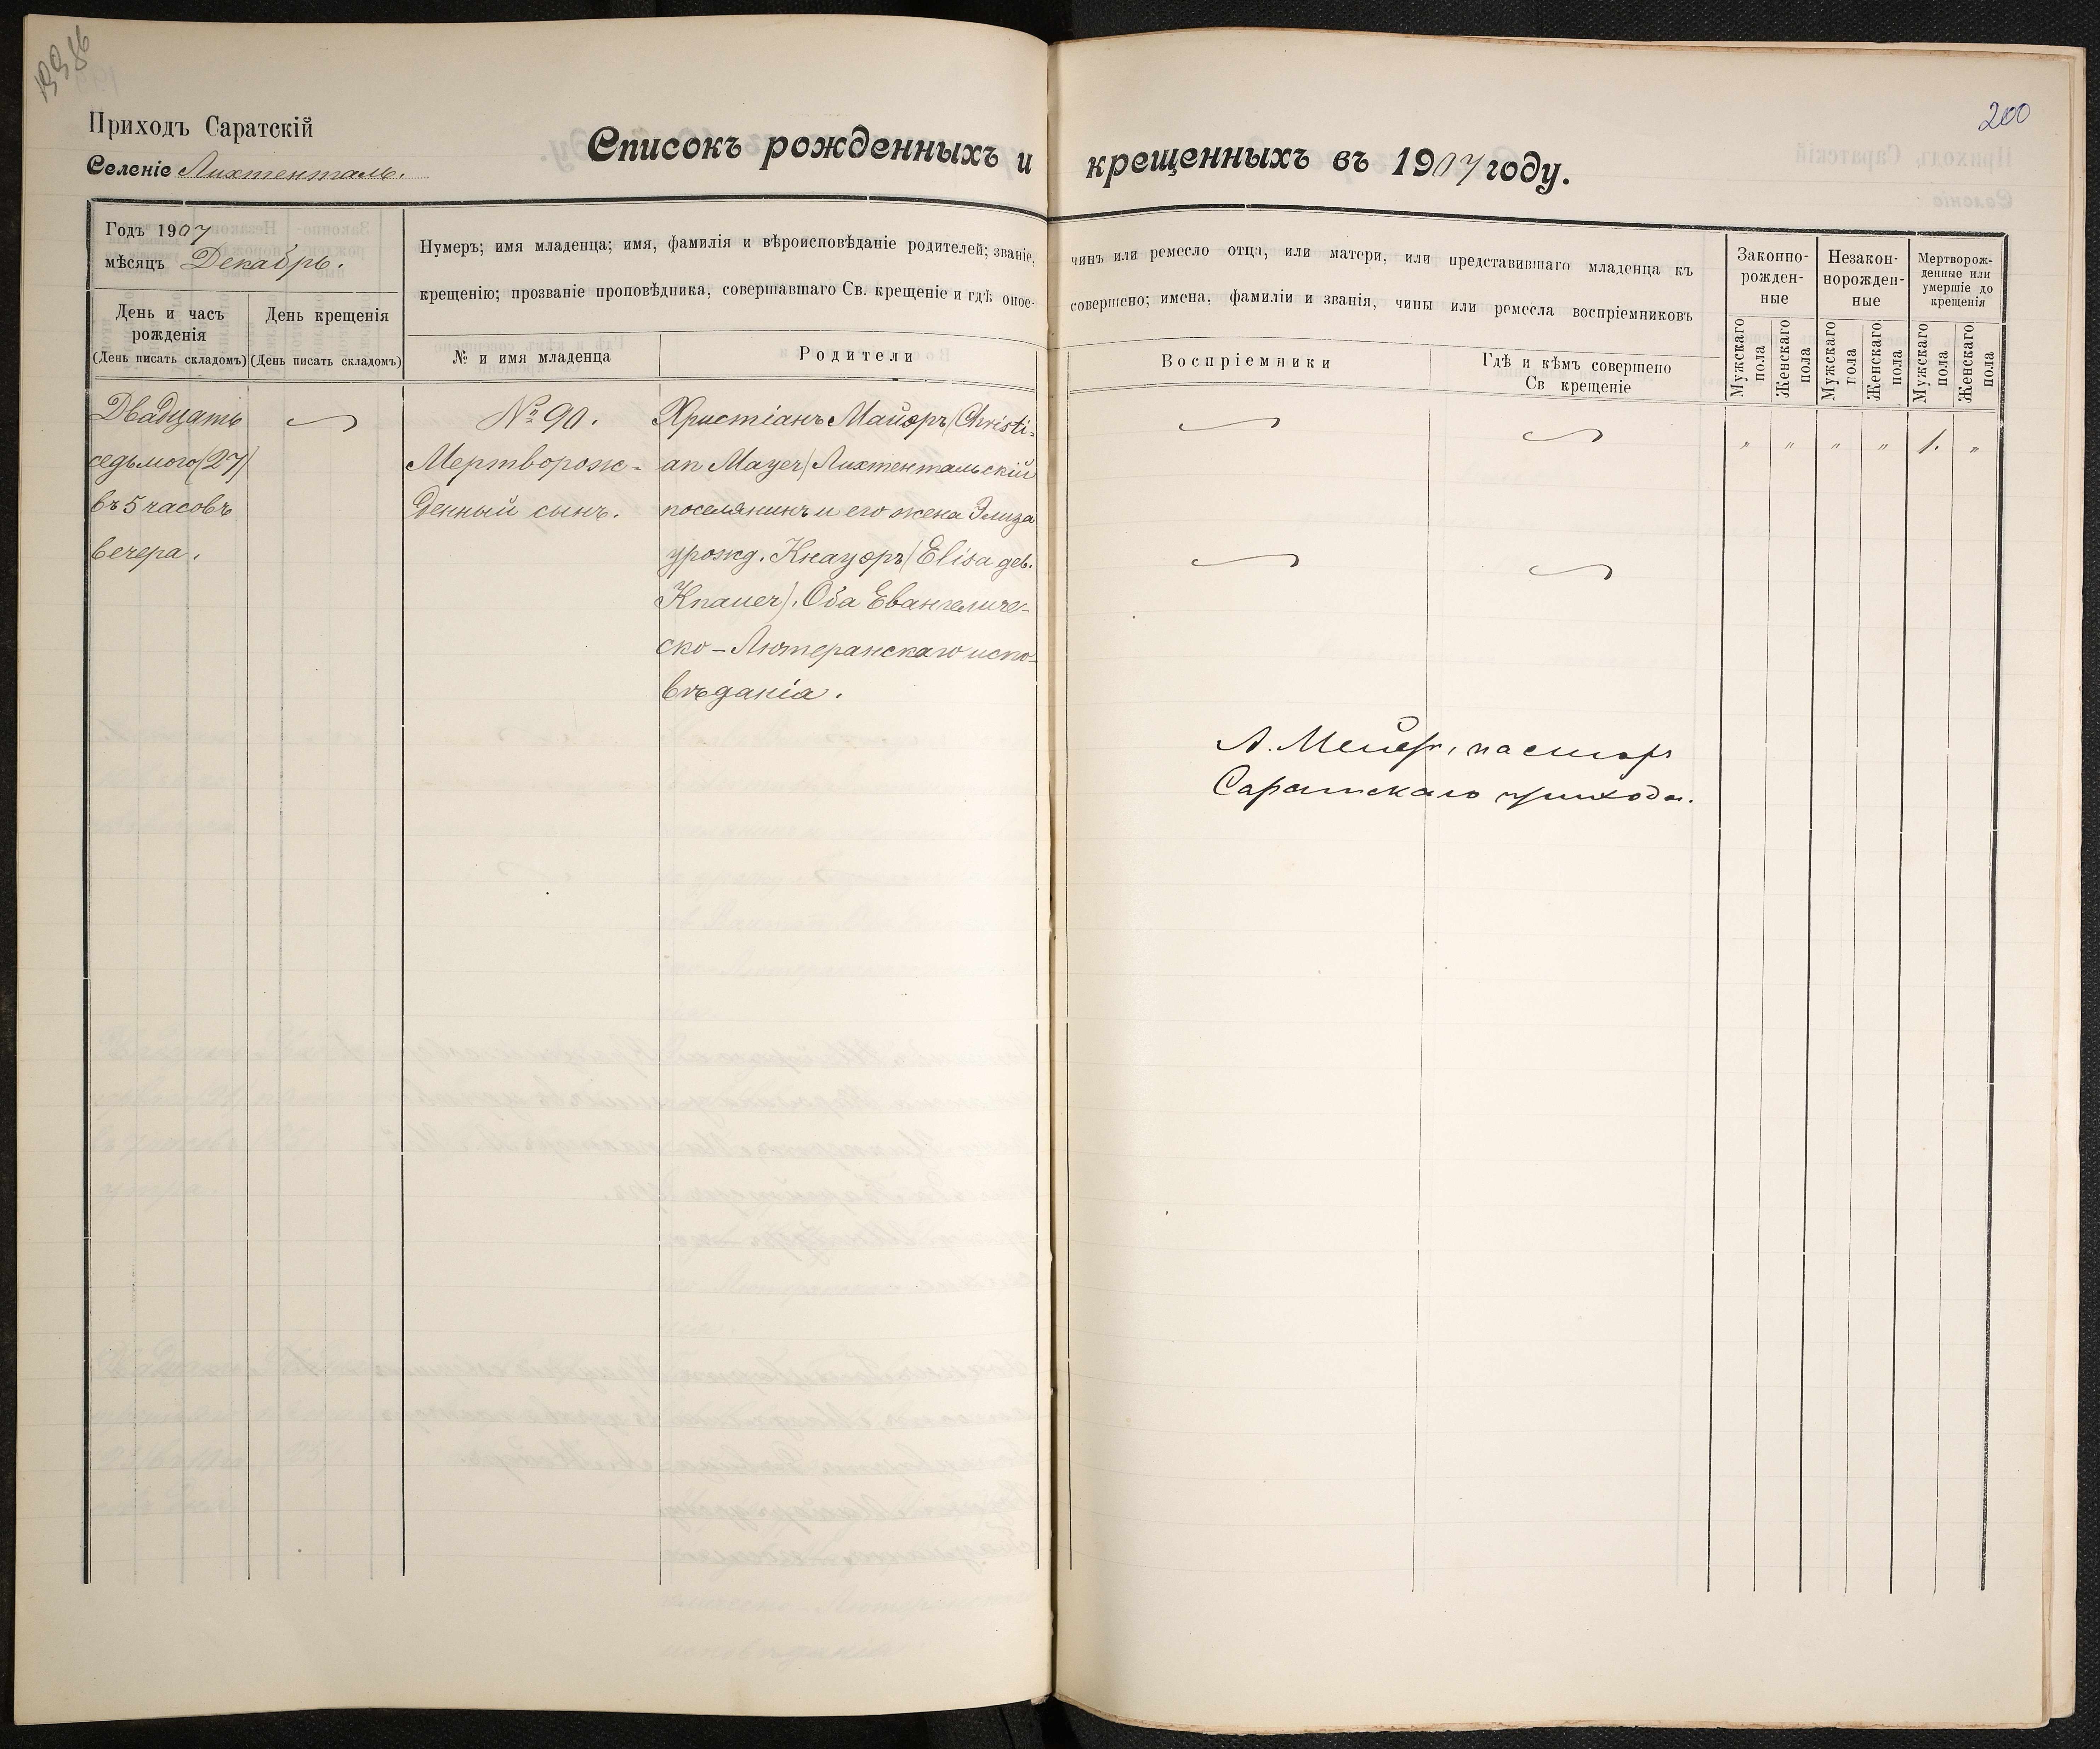 1336
200
Приходъ Саратскій
Селеніе Лихтенталь.
Списокъ рожденныхъ и крещенныхъ въ 1907 году.
Годъ 1907
мѣсяцъ Декабрь.
День и часъ
рожденія
(День писать складомъ)
День крещенія
(День писать складомъ)
Нумеръ; имя младенца; имя, фамилія и вѣроисповѣданіе родителей; званіе, чинъ или ремесло отца, или матери, или представившаго младенца къ
крещенію; прозваніе проповѣдника, совершавшаго Св. крещеніе и гдѣ оное совершено; имена, фамиліи и званія, чины или ремесла воспріемниковъ
№ и имя младенца
Родители
Воспріемники
Гдѣ и кѣмъ совершено
Св крещеніе
Законно-
рожден-
ные
Незакон-
норожден-
ные
Мертворож-
денные или
умершіе до
крещенія
Мужскаго
пола
Женскаго
пола
Мужскаго
пола
Женскаго
пола
Мужскаго
пола
Женскаго
пола
Двадцать
седьмого (27)
въ 5 часовъ
вечера.
№ 90.
Мертворож-
денный сынъ.
Христіанъ Майэръ (Christi-
an Mayer) Лихтентальскій
поселянинъ и его жена Элиза
урожд. Кнауэръ (Elisa geb.
Knauer). Оба Евангеличе-
ско-Лютеранскаго испо-
вѣданія.
" " " " 1. "
А. Мейеръ, пасторъ
Саратскаго прихода.